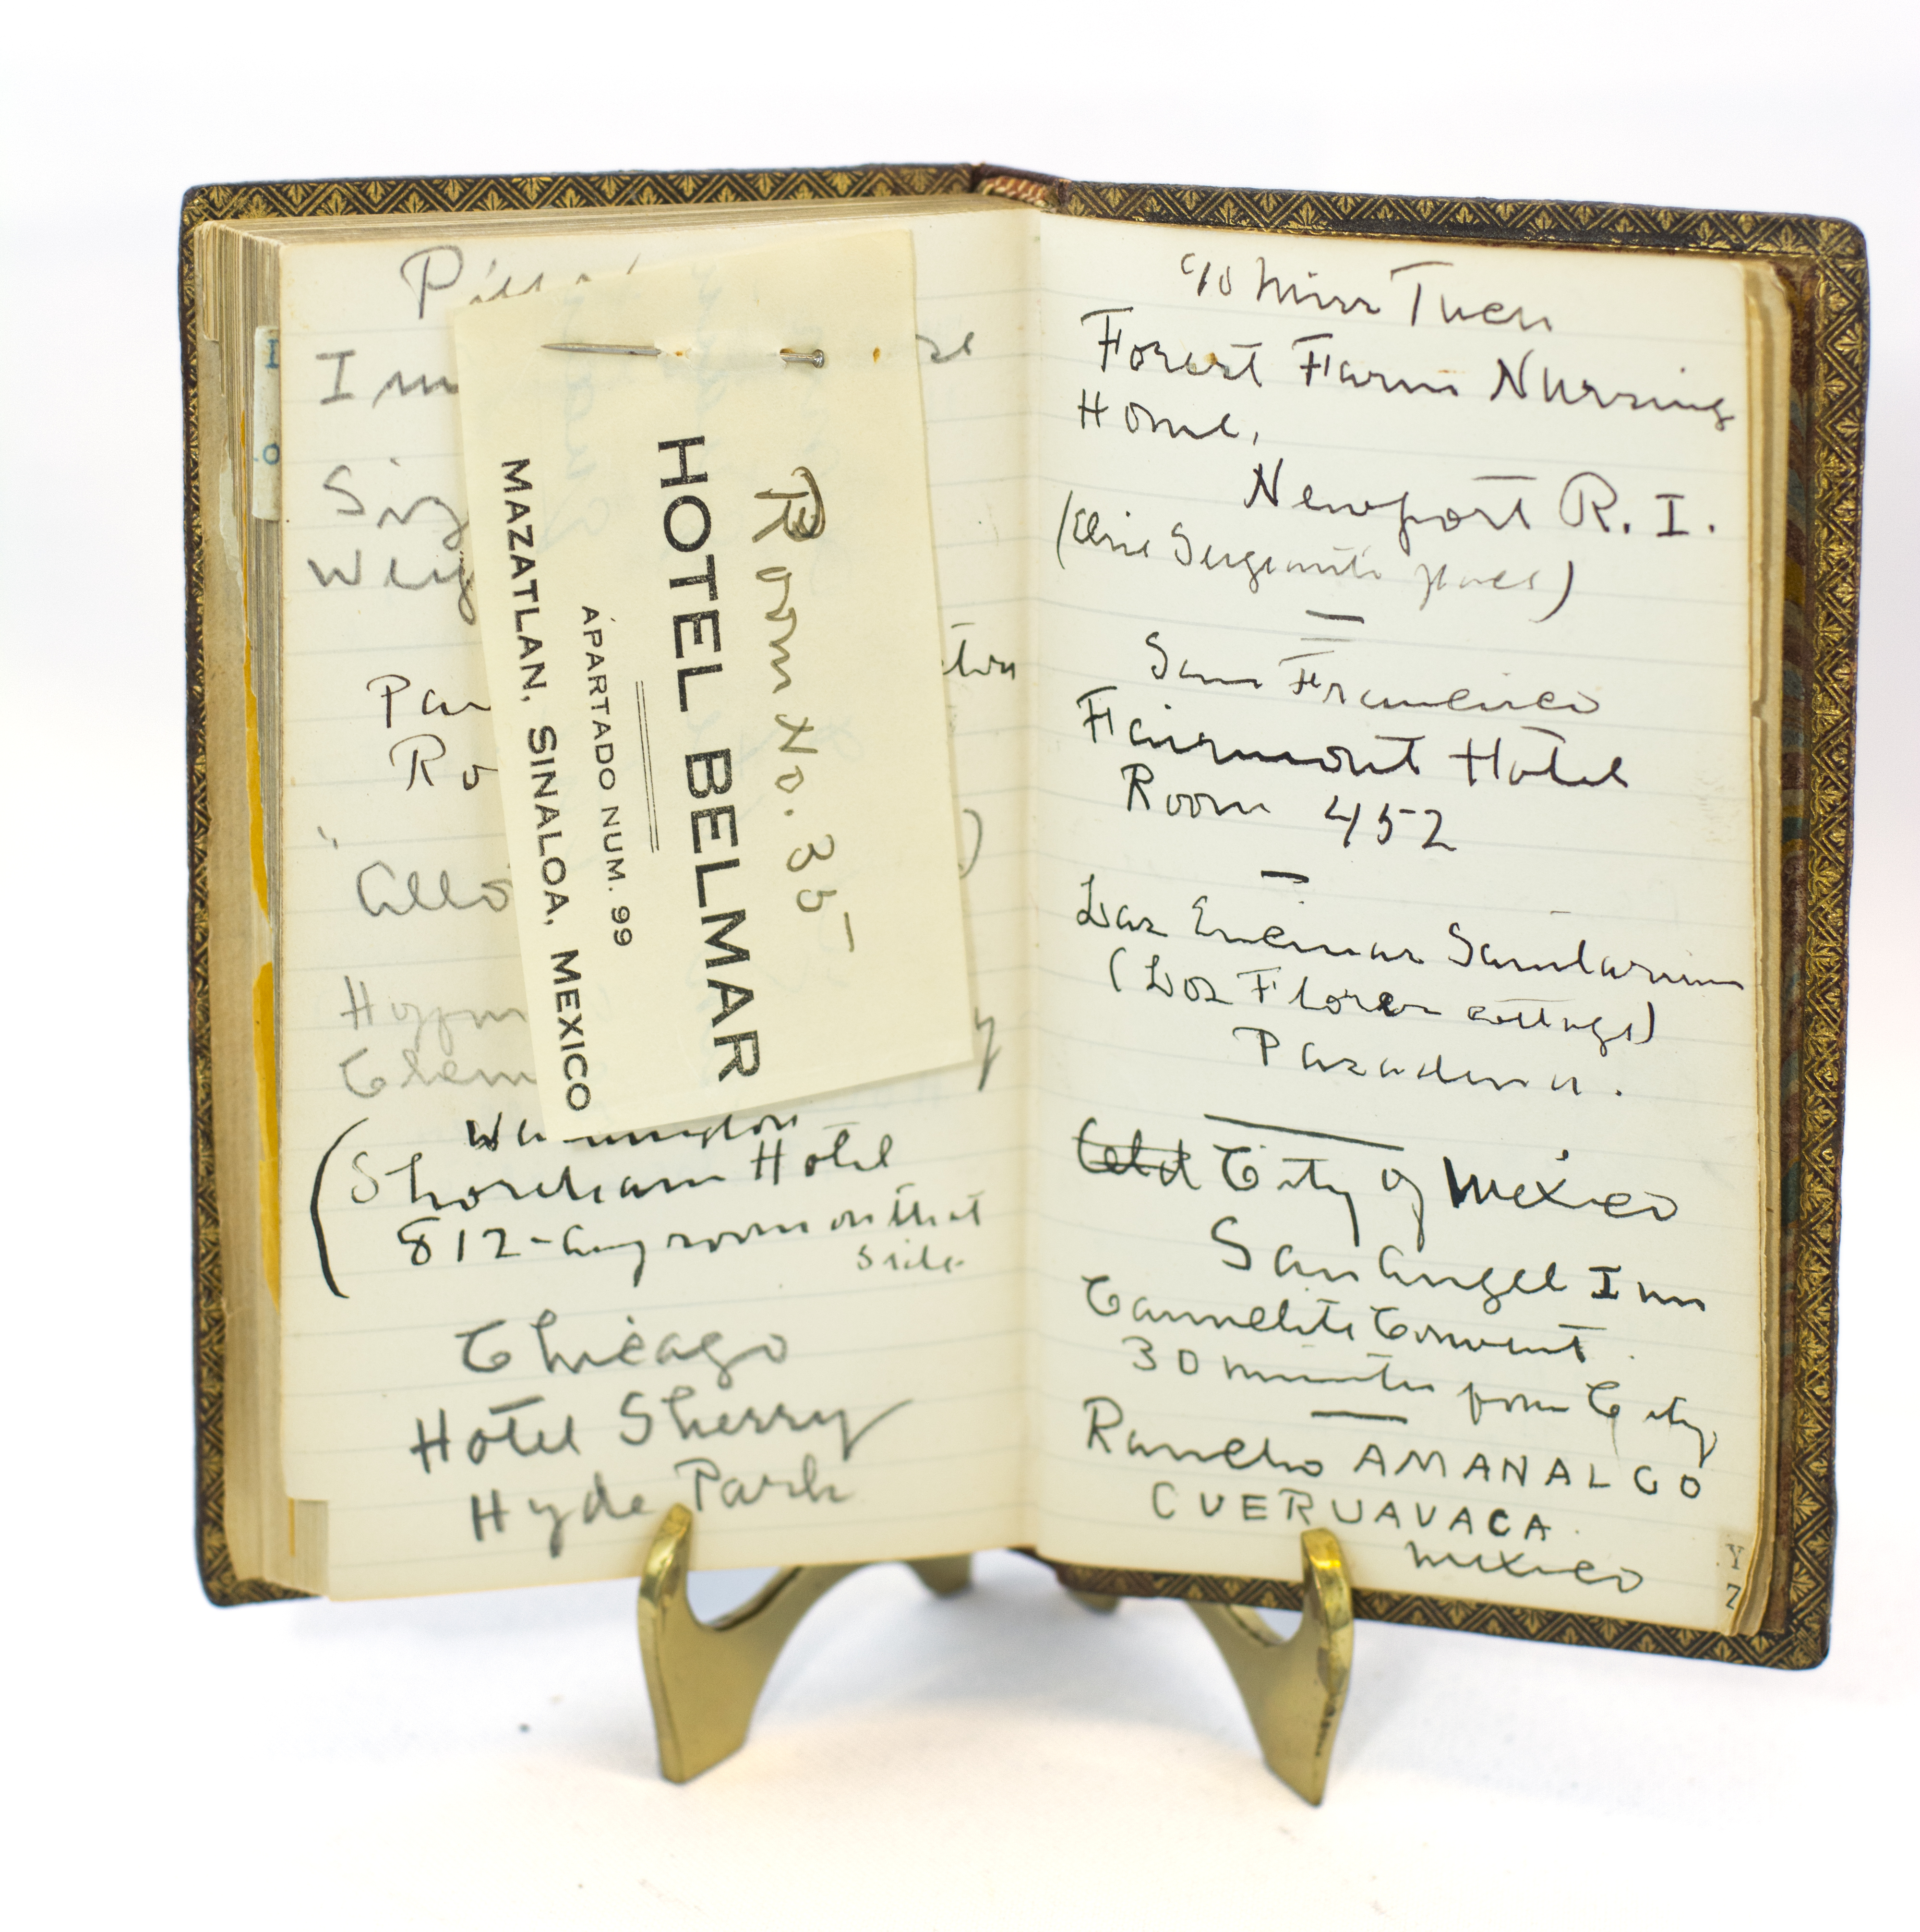 Room No. 35
HOTEL BELMAR
APARTADO NUM. 99
MAZATLAN, SINALOA, MEXICO
Washington
(Shoreham Hotel
812 - any room on that
side
Chicago
Hotel Sherry
Hyde Park
c/o Miss
Forest Farm Nursing
Home,
Newport R. I.
San Francisco
Fairmont Hotel
Room 452
Las Encinas Sanitarium
(Las Flores cottage)
Pasadena.
City of Mexico
San Angel Inn
Carmelite Convent.
30 minutes from City
Rancho AMANALCO
CUERUAVACA
Mexico
Y
Z